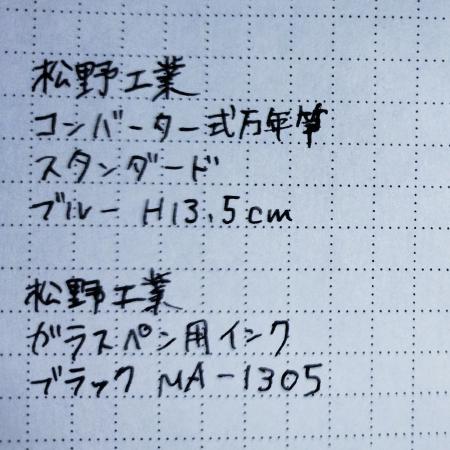 松野工業
コンバーター式万年筆
スタンダード
ブルー H13.5cm
松野工業
ガラスペン用インク
ブラック MA-1305